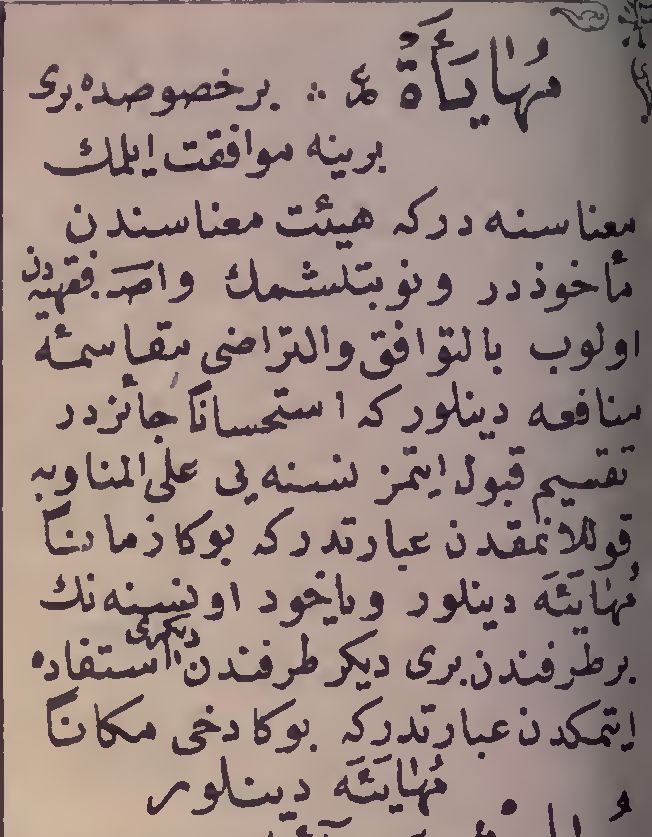 مُهَایَأَةٌ ع ∴ بر خصوصده بری
برینه موافقت ایلمك
معناسنه دركه هیئت معناسندن
مأخوذدر ونوبتلشمك واصـ فقهیه دن
اولوب بالتوافق والتراضی مقاسمهٔ
منافعه دینلوركه استحساناً جائزدر
تقسیم قبول ایتمز نسنه یی علی المناوبه
قوللانمقدن عبارتدركه بوكا زماناً
مُهَایَئَه دینلور ویاخود او نسنه نك
بر طرفندن بری دیكر طرفندن دیكری استفاده
ایتمكدن عبارتدركه بوكا دخی مكاناً
مُهَایَئَه دینلور